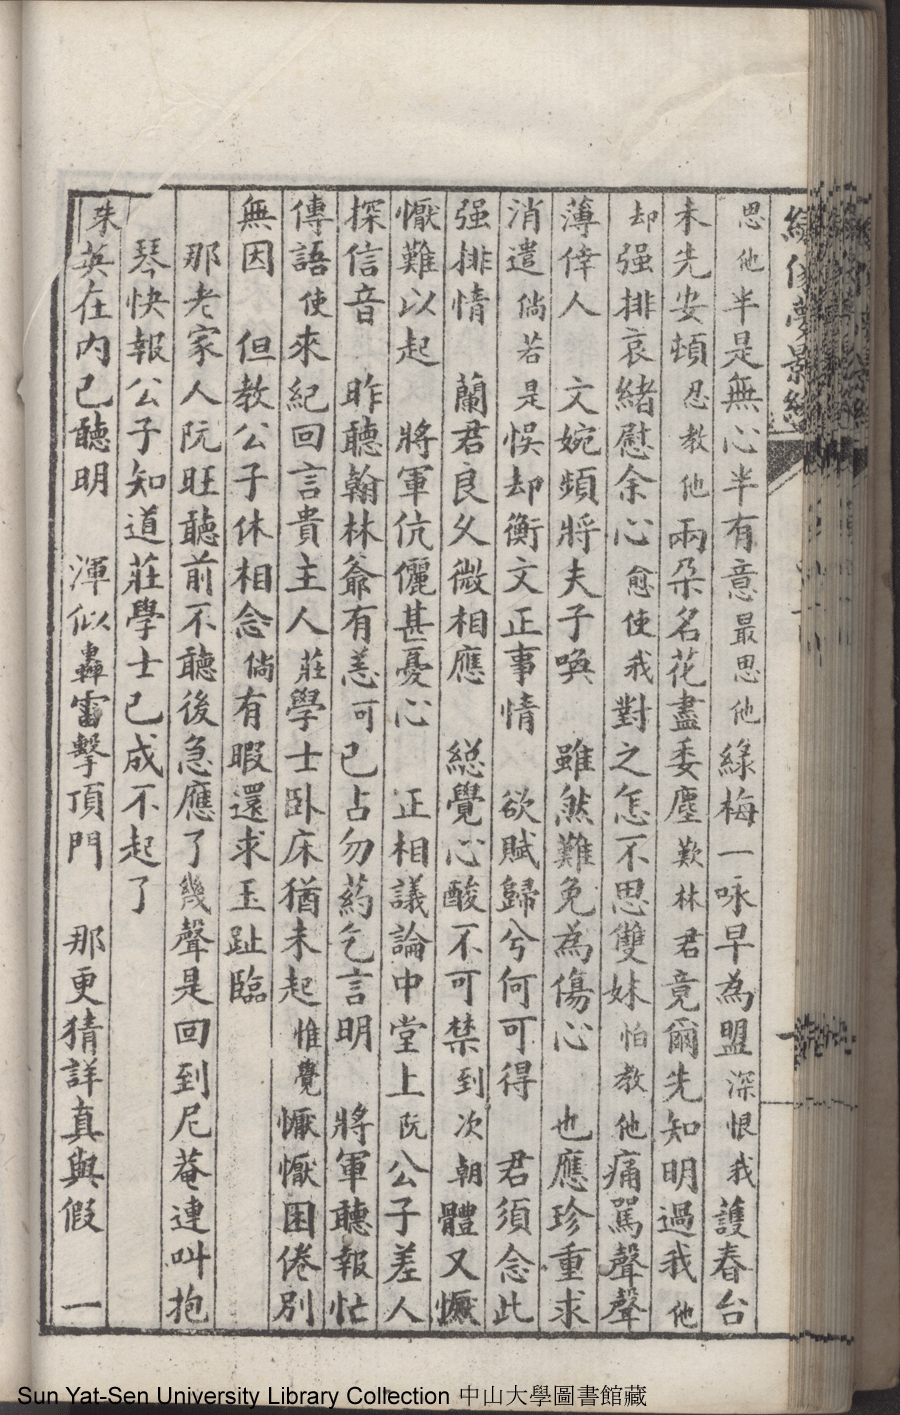 繪像夢影緣
思他半是無心半有意最思他綠梅一咏早為盟深恨我護春台
未先安頓忍教他兩朶名花盡委塵歎林君竟爾先知明過我他
却强排哀緒慰余心愈使我對之怎不思雙妹怕教他痛罵聲聲
薄倖人 文婉頻將夫子喚 雖然難免為傷心 也應珍重求
消遣倘若是悞却衡文正事情 欲賦歸兮何可得 君須念此
强排情 蘭君良久微相應 総覺心酸不可禁到次朝體又懨
懨難以起 將軍伉儷甚憂心 正相議論中堂上阮公子差人
探信音 昨聽翰林爺有恙可已占勿葯乞言明 將軍聽報忙
傳語使來紀回言貴主人莊學士卧床猶未起惟覺懨懨困倦別
無因 但教公子休相念倘有暇還求玉趾臨
那老家人阮旺聽前不聽後急應了幾聲是回到尼菴連叫抱
琴快報公子知道莊學士已成不起了
珠英在内已聽明 渾似轟雷擊頂門 那更猜詳真與假 一
Sun Yat-Sen University Library Collection 中山大學圖書館藏